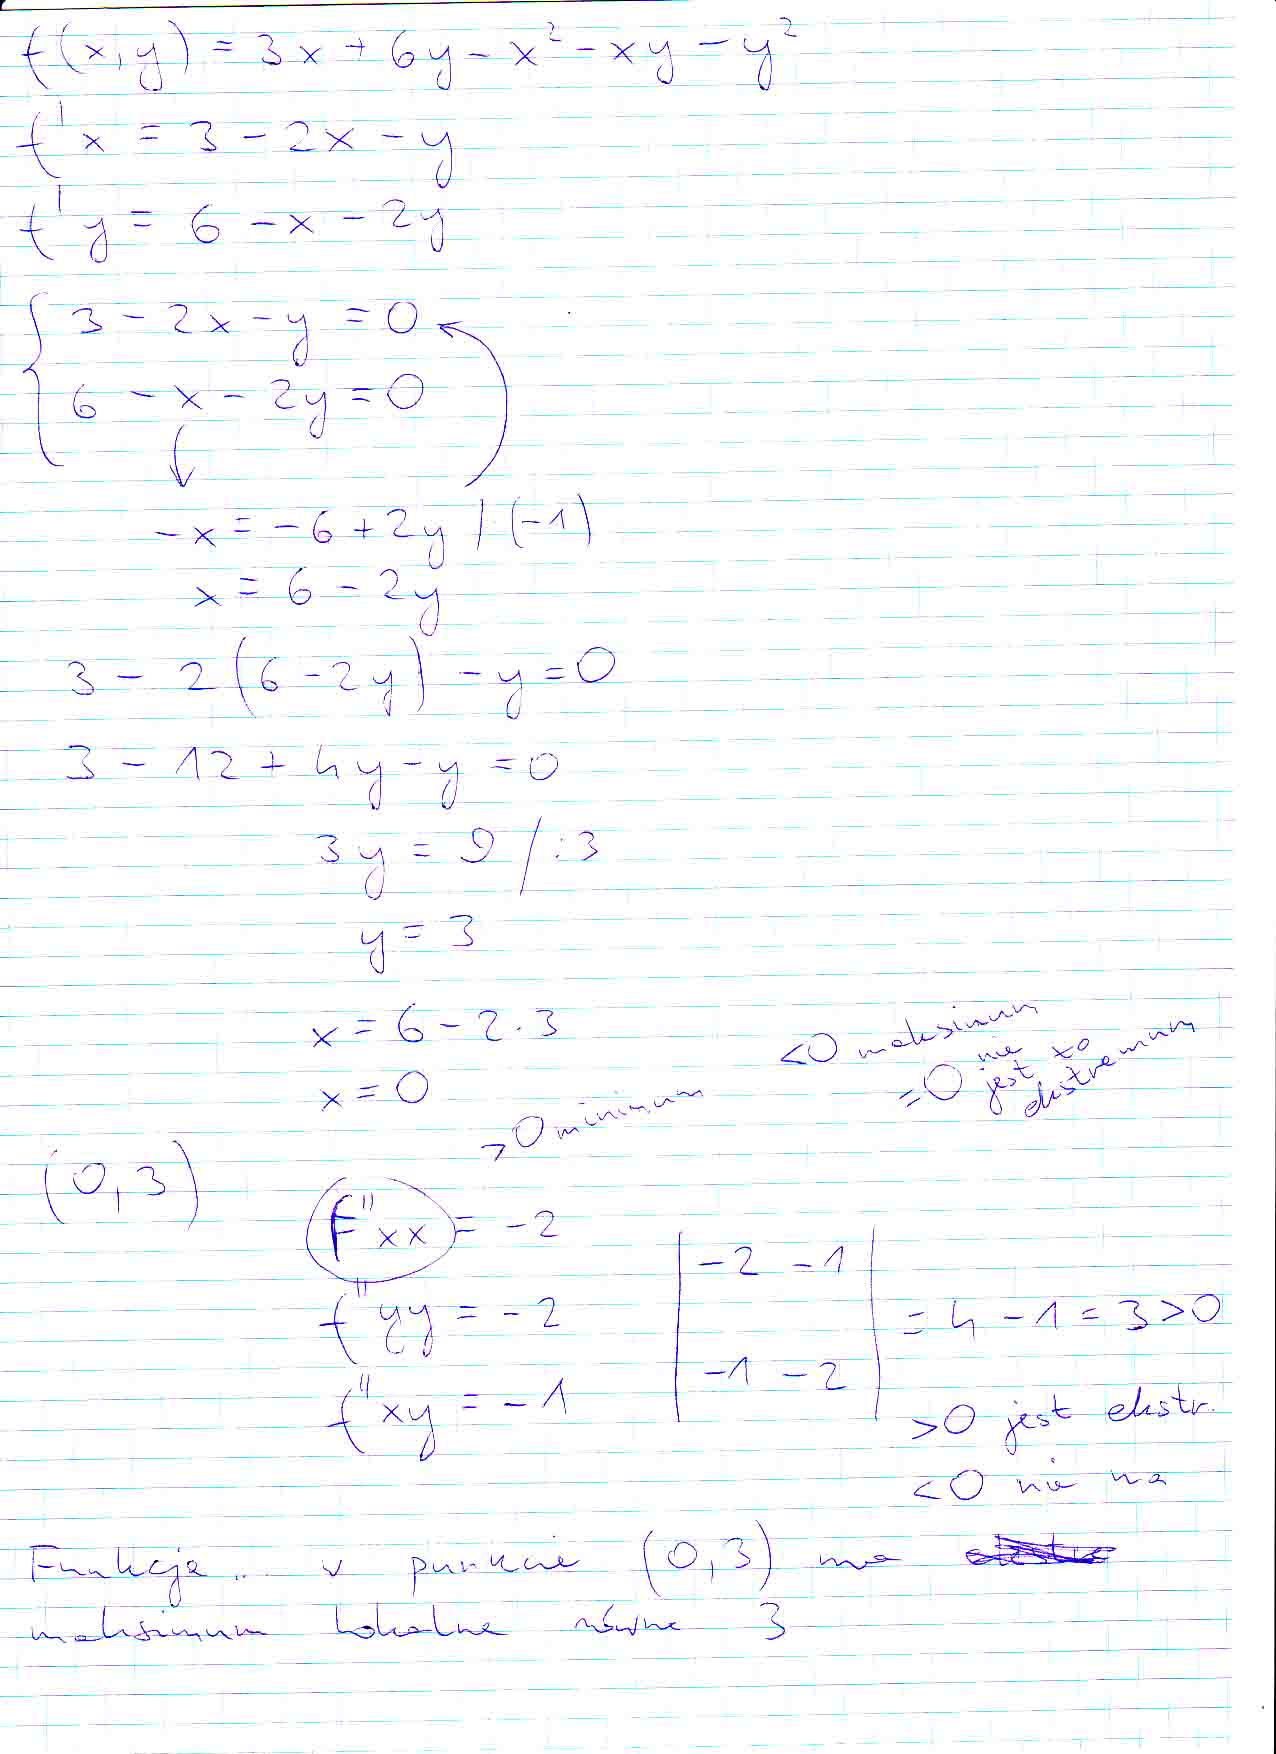 f(x,y) = 3x + 6y - x² - xy - y²
f'x = 3 - 2x - y
f'y = 6 - x - 2y
3 - 2x - y = 0
6 - x - 2y = 0
-x = -6 + 2y /·(-1)
x = 6 - 2y
3 - 2(6 - 2y) - y = 0
3 - 12 + 4y - y = 0
3y = 9 /:3
y = 3
x = 6 - 2·3
x = 0
>0 minimum
<0 maksimum
=0 nie jest to ekstremum
(0,3)
f''xx = -2
f''yy = -2
f''xy = -1
| -2 -1 |
| -1 -2 | = 4 - 1 = 3 > 0
>0 jest ekstr.
<0 nie ma
Funkcja .. w punkcie (0,3) ma
maksimum lokalne równe 3